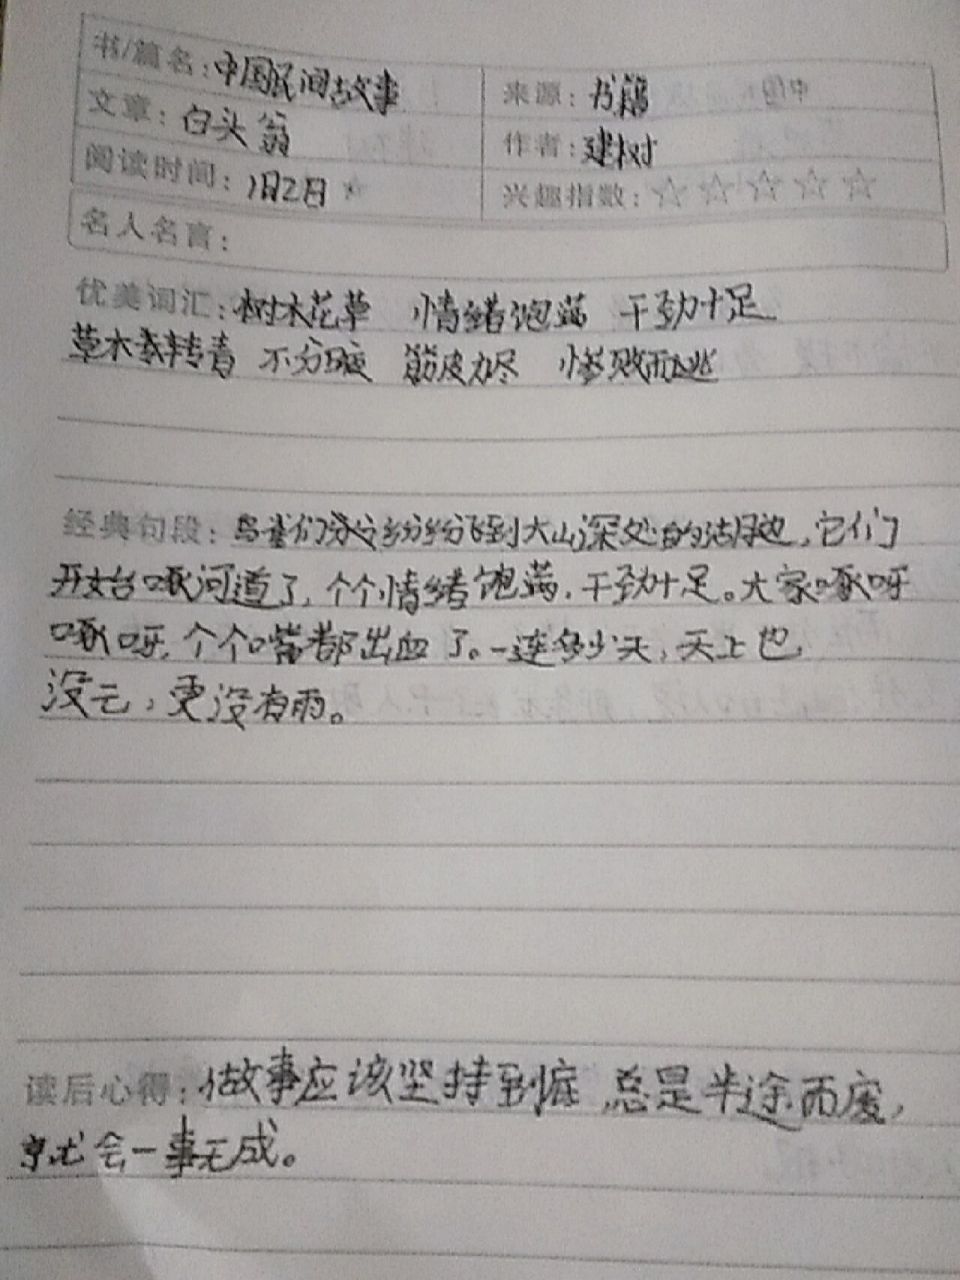 书/篇名：中国民间故事
来源：书籍
文章：白头翁
作者：建树
阅读时间：1月2日
兴趣指数：☆☆☆☆☆
名人名言：
优美词汇：树木花草 情绪饱满 干劲十足
草木转青 不分昼夜 筋皮力尽 惨败而逃
经典句段：鸟雀们纷纷飞到大山深处的湖边，它们
开始啄河道了，个个情绪饱满，干劲十足。大家啄呀
啄呀，个个嘴都出血了。一连多少天，天上也
没云，更没有雨。
读后心得：做故事应该坚持到底，总是半途而废，
就会一事无成。